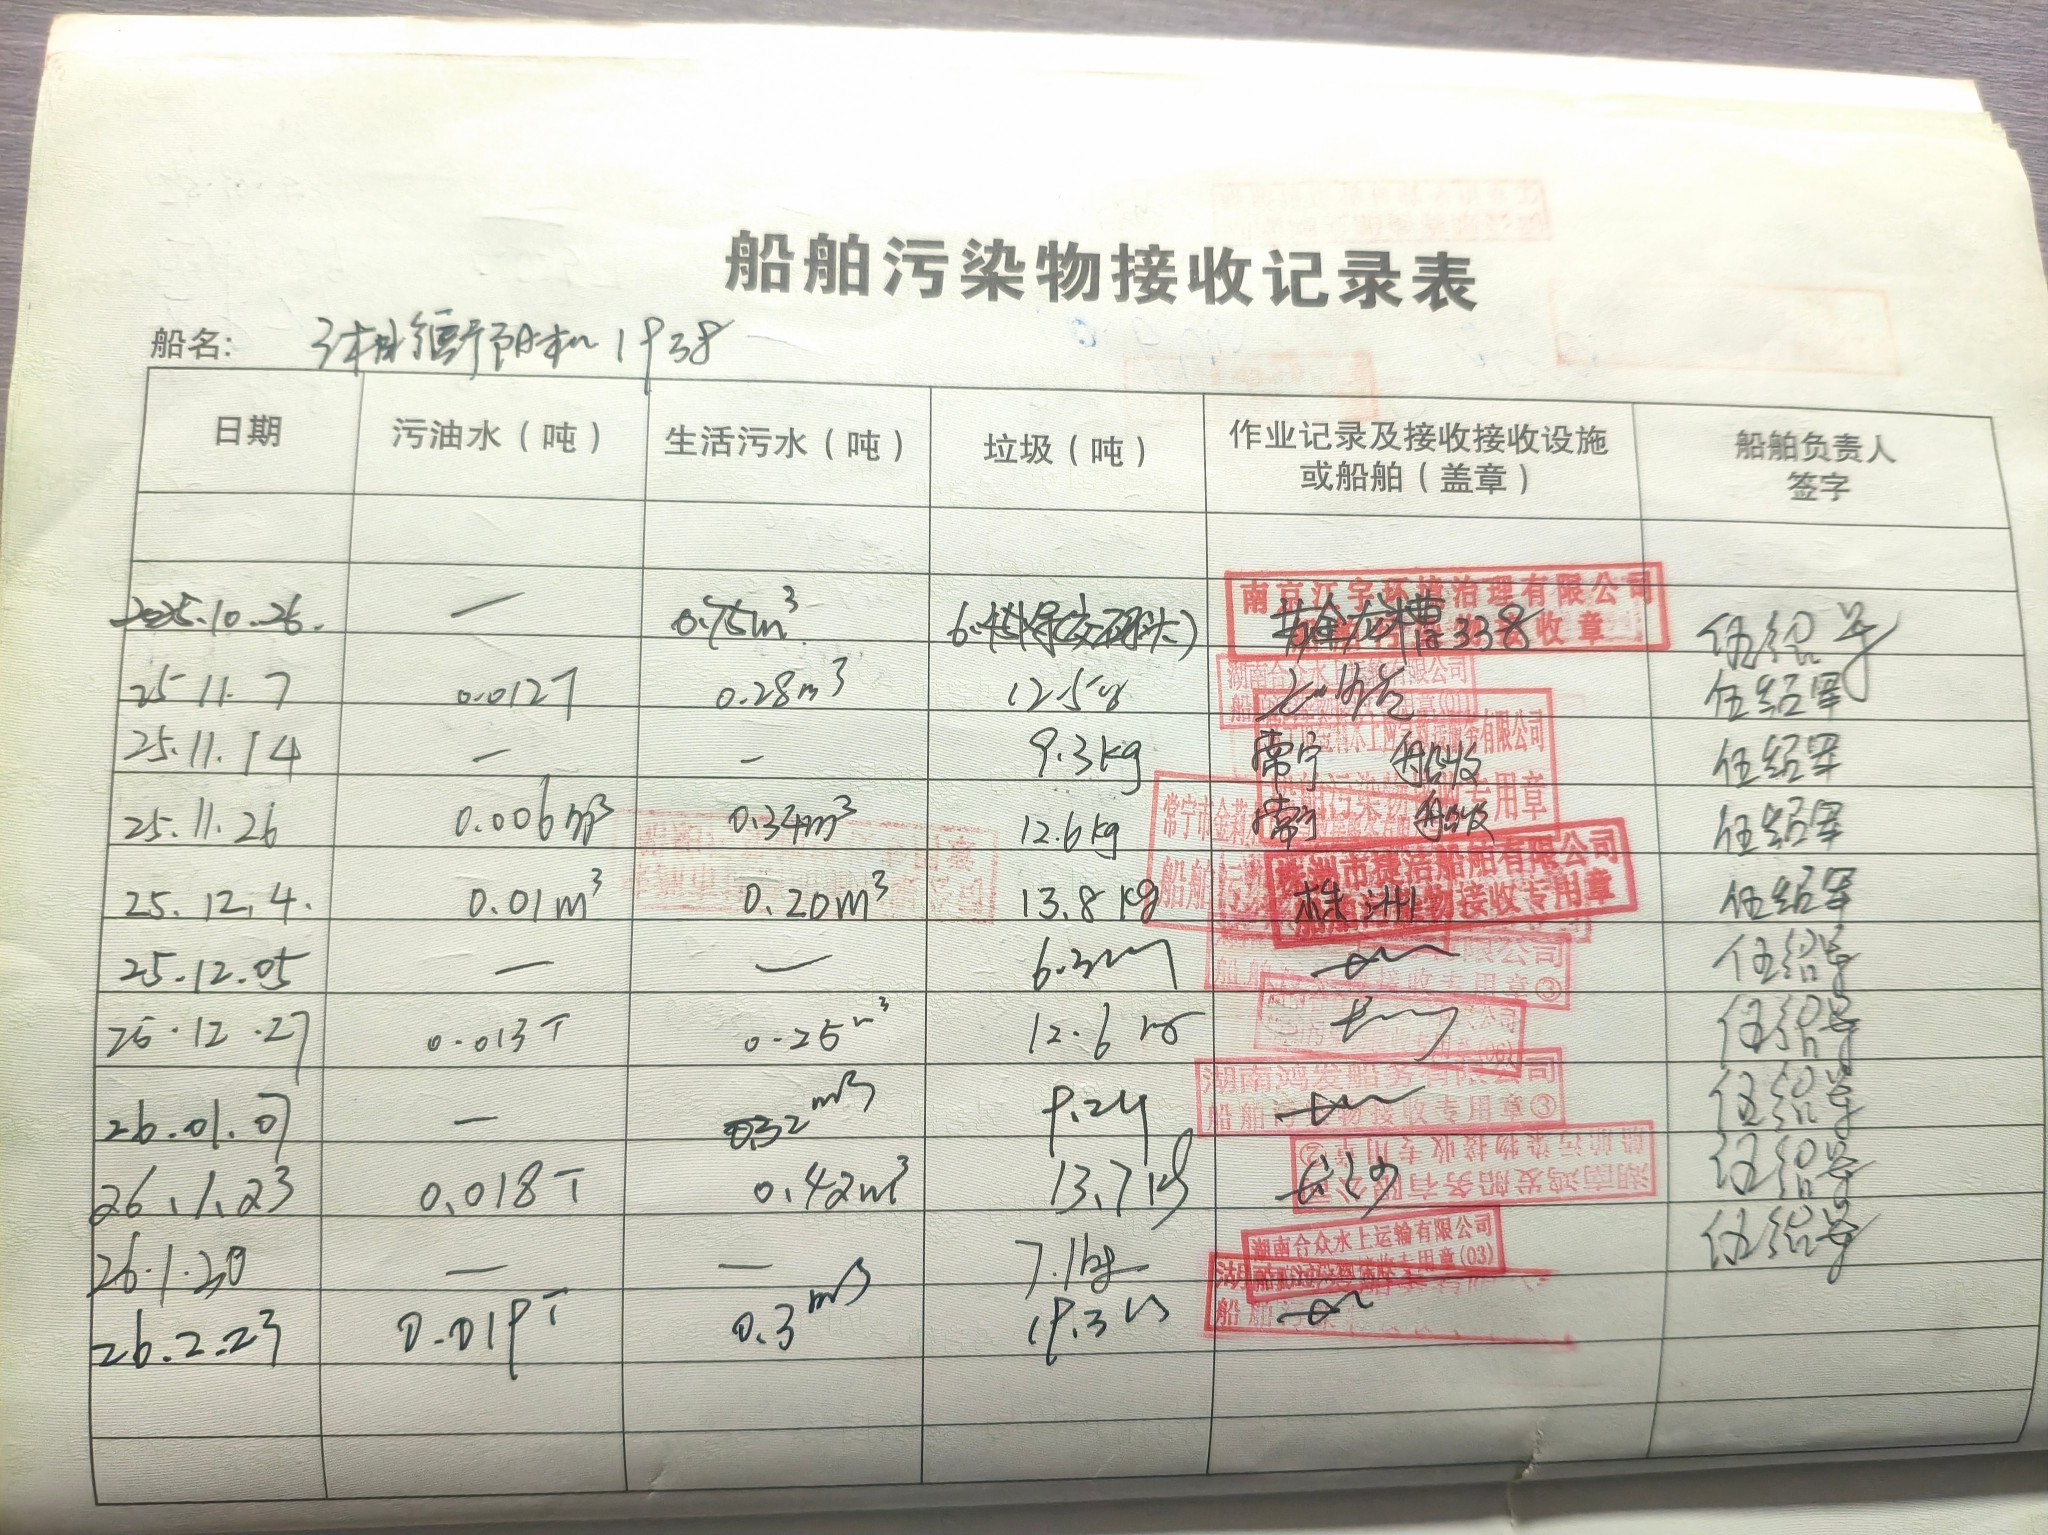 船舶污染物接收记录表
船名: 湘衡阳机1938
日期 污油水（吨） 生活污水（吨） 垃圾（吨） 作业记录及接收接收设施或船舶（盖章） 船舶负责人签字
南京江宇环境治理有限公司
收章
2025.10.26. — 0.75m³ 338 伍绍军
湖南合众水上有限公司
25.11.7 0.012T 0.28m³ 12.5kg 伍绍军
25.11.14 — — 9.3kg 常宁 船收 伍绍军
专用章
25.11.26 0.006m³ 0.34m³ 12.6kg 常宁 伍绍军
常宁市金莉
船舶污
株洲市捷洁船舶有限公司
物接收专用章
25.12.4. 0.01m³ 0.20m³ 13.8kg 株洲 伍绍军
25.12.05 — — 伍绍军
船舶 接收专用章③
25.12.27 0.013T 0.25m³ 12.6kg 伍绍军
湖南鸿发船务有限公司
船舶污染物接收专用章③
26.01.07 — 0.32m³ 伍绍军
船舶污染物接收专用章②
湖南鸿发船务有限公司
26.1.23 0.018T 0.42m³ 13.7kg 长沙 伍绍军
湖南合众水上运输有限公司
接收专用章(03)
— — 7.1kg 伍绍军
26.2.23 0.019T 0.3m³ 19.3kg